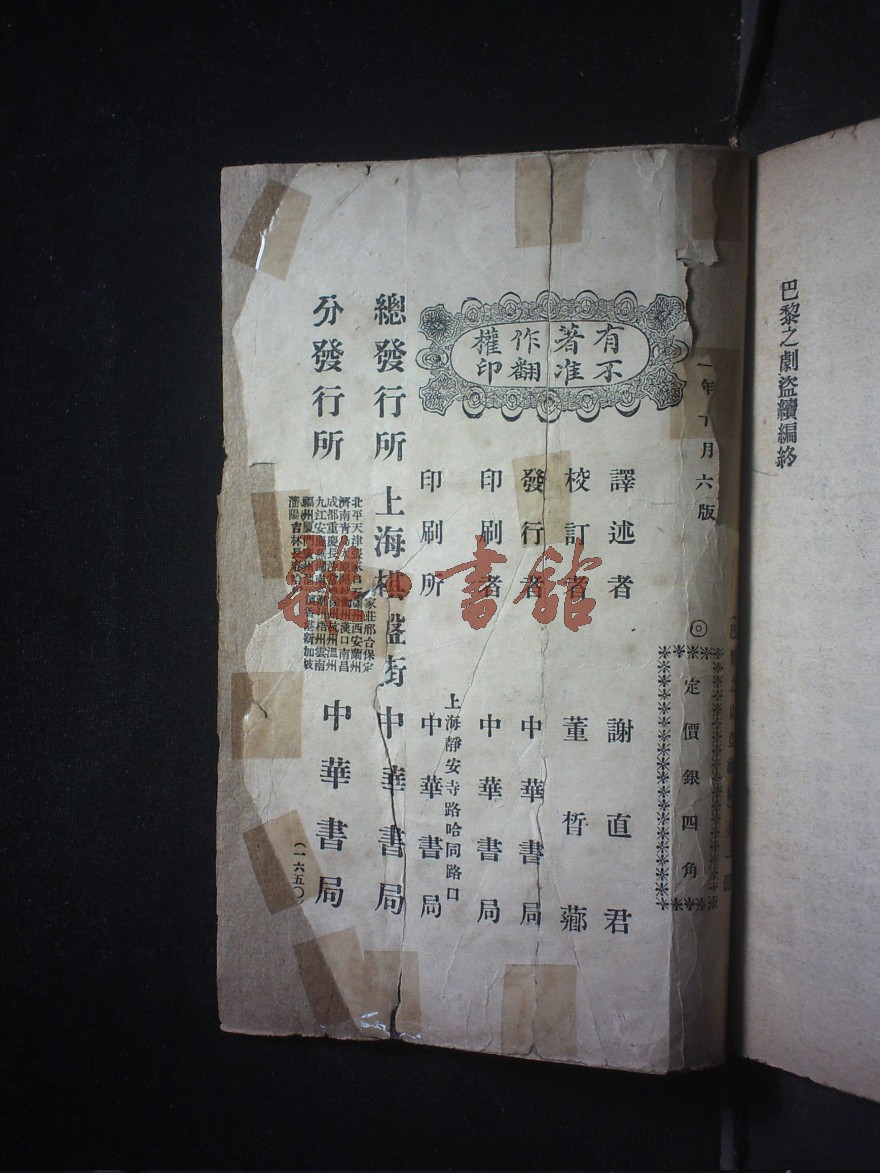 巴黎之劇盜續編終
年十月六版
◎
定價銀四角
有著作權
不准翻印
譯述者 謝直君
校訂者 董晳薌
發行者 中華書局
印刷者 中華書局
上海靜安寺路哈同路口
印刷所 中華書局
總發行所 上海棋盤街中華書局
分發行所 中華書局
北平天津張家口
濟南青
成都重慶長沙 溫州
九江安慶 雲南
福州廈門廣州 香港新加坡
瀋陽吉林長春
家莊邢台保定
西安蘭州
漢口南昌
(一六五〇)
書館